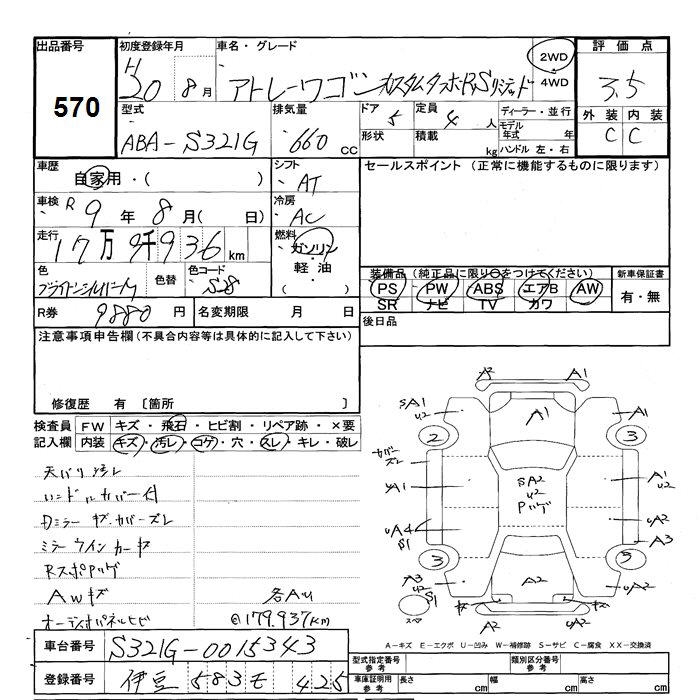 出品番号 初度登録年月 車名・グレード 2WD 評価点
570
H 20 8月 アトレーワゴン カスタムターボRSリミテッド 4WD 3.5
型式 排気量 ドア 定員 ディーラー・並行 外装 内装
ABA-S321G 660 CC 5 4 人 モデル年式 年 C C
形状 積載 kg ハンドル 左・右
車歴 シフト セールスポイント (正常に機能するものに限ります)
自家用・( ) AT
車検 R 9年 8月( 日) 冷房 AC
走行 17万9千936 km 燃料 ガソリン・軽油・( )
色 色替 色コード S28
装備品(純正品に限り○をつけてください) 新車保証書
PS PW ABS エアB AW 有・無
SR ナビ TV カワ
R券 9880円 名変期限 月 日 後日品
注意事項申告欄(不具合内容等は具体的に記入して下さい)
修復歴 有 〔箇所 〕
検査員 FW キズ・飛石・ヒビ割・リペア跡・×要
記入欄 内装 キズ・汚レ・コゲ・穴・スレ・キレ・破レ
天バリ汚レ
ハンドルカバー付
Dミラーキズ.カバーズレ
ミラーウインカーキズ
RスポPハゲ
AWキズ 各AU
オーディオパネルヒビ @179.937km
A2 A1
SA1 U2 A1 A1
2 3
カバーズレ
A1 SA2 U2 Pハゲ A1 U2
UA4 S1 UA2
A3
3 5
A3 S1 A2 UA2
スペア キズ キズ
A2 A2
A-キズ E-エクボ U-凹み W-補修跡 S-サビ C-腐食 XX-交換済
車台番号 S321G-0015343
型式指定番号 参考 類別区分番号 参考
登録番号 伊豆 583 モ 425
車庫証明用 参考 長さ cm 幅 cm 高さ cm